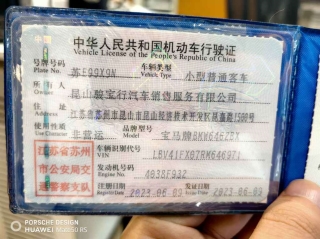 中华人民共和国机动车行驶证
Vehicle License of the People's Republic of China
号牌号码 苏E99X9N 车辆类型 小型普通客车
Plate No. Vehicle Type
所有人 昆山骏宝行汽车销售服务有限公司
Owner
住址 江苏省苏州市昆山市昆山经济技术开发区昆嘉路1588号
Address
使用性质 非营运 品牌型号 宝马牌
Use Character Model
江苏省苏州 车辆识别代号
市公安局交 VIN
通警察支队 发动机号码
Engine No.
注册日期 2023-06-03 发证日期 2023-06-03
Register Date Issue Date
PORSCHE DESIGN
HUAWEI